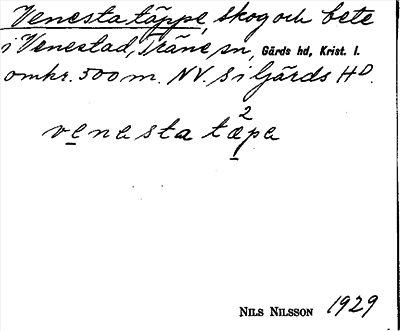 Venestatäppe, skog och bete
i Venestad, Träne sn, Gärds hd, Krist. l.
omkr. 500 m. NV. s i Gärds HD.
venesta täpe
2
NILS NILSSON 1929